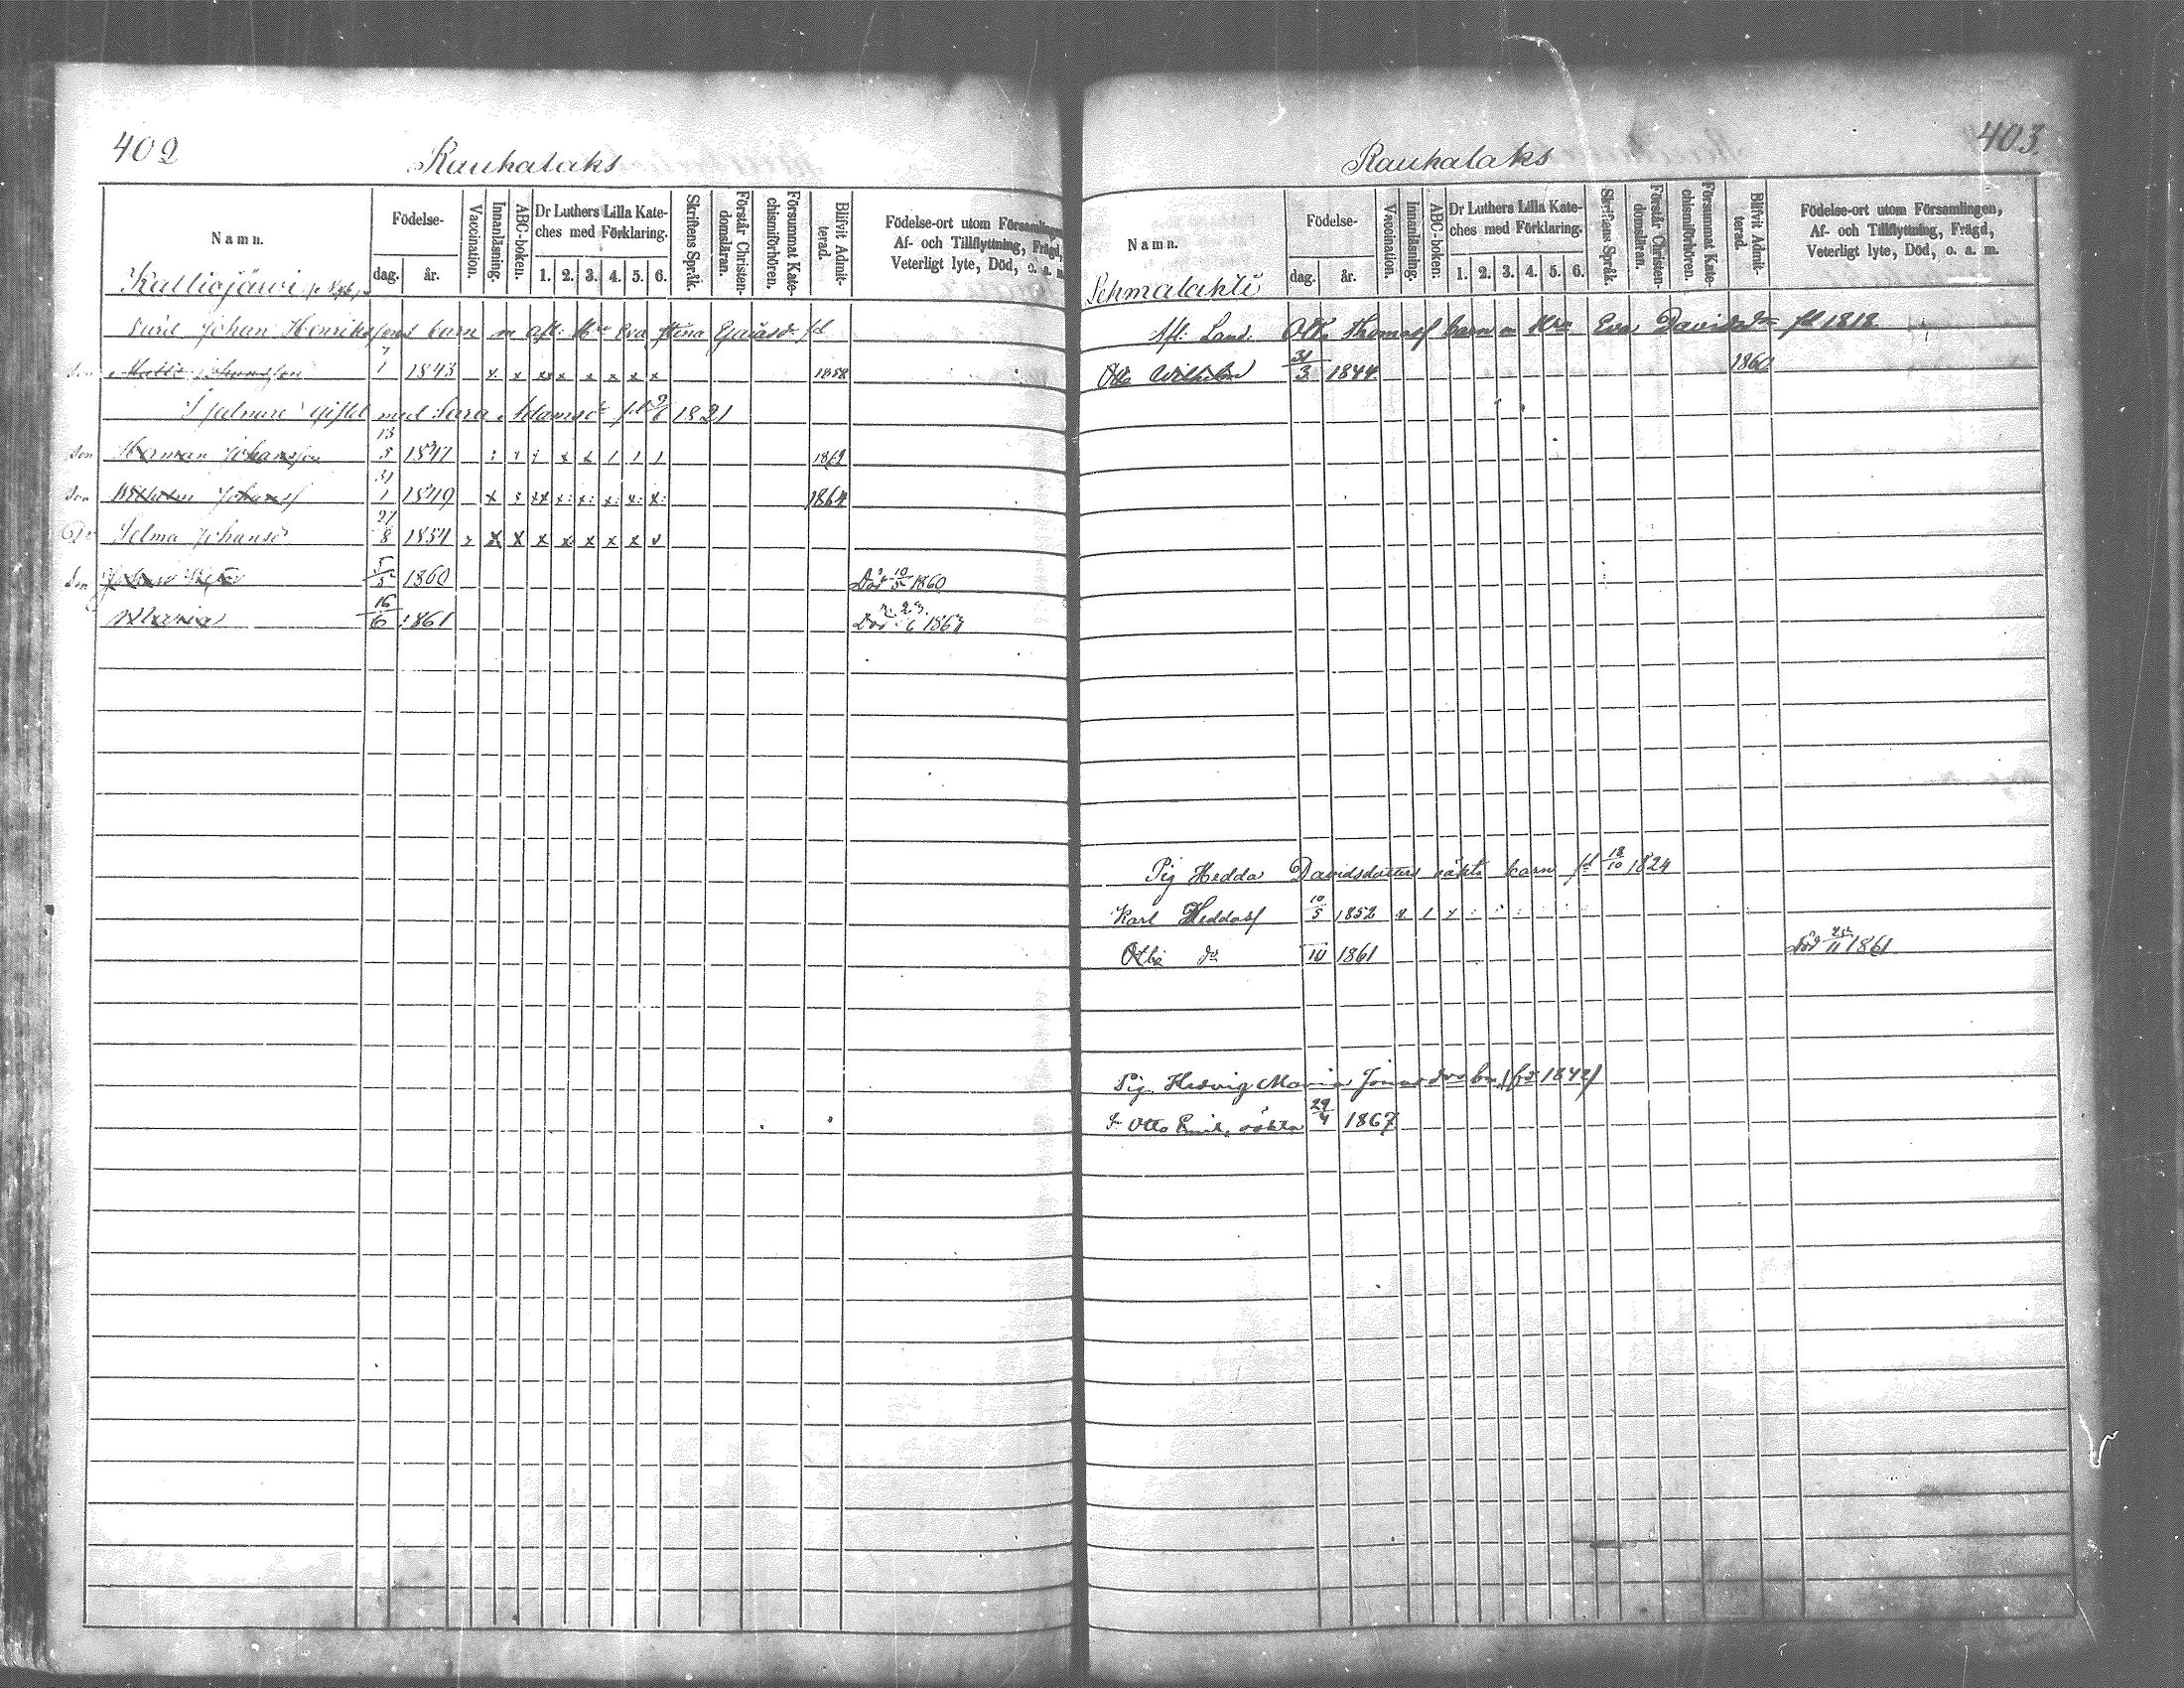 402
Rauhalaks
Namn.
Födelse-
dag.
år.
Vaccination.
Innanläsning.
ABC-boken.
Dr Luthers Lilla Kate-
ches med Förklaring.
1. 2. 3. 4. 5. 6.
Skriftens Språk.
Förstår Christen-
domsläran.
Försummat Kate-
chismiförhören.
Blifvit Admit-
terad.
Födelse-ort utom Församlingen,
Af- och Tillflyttning, Frägd,
Veterligt lyte, Död, o. a. m.
Kalliojärvi
Johan Henrikssons barn m afl: Eva Stina
Son Matts Johansson 1 1843 x x xx x x x x x 1858
gift med Sara Adamsd: 1821
Son Herman Johansson 13/5 1847
Son Wilhelm Johanss 31/1 1849 1864
Selma Johansd 27/8 1854 x x x x x x x x
Son 5/5 1860 Död 10/5 1860
Maria 16/6 1861 Död 23/6
403.
Rauhalaks
Namn.
Födelse-
dag.
år.
Vaccination.
Innanläsning.
ABC-boken:
Dr Luthers Lilla Kate-
ches med Förklaring.
1. 2. 3. 4. 5. 6.
Skriftens Språk.
Förstår Christen-
domsläran.
Försummat Kate-
chismiförhören.
Blifvit Admit-
terad.
Födelse-ort utom Församlingen,
Af- och Tillflyttning, Frägd,
Veterligt lyte, Död, o. a. m.
Afl: Land: Otto Thomass barn m Hro Eva Davidsdr fd 1818
Otto Wilhelm 31/3 1844 1860
Pig Hedda Davidsdotters oäkta barn fd 18/10 1824
Karl Heddass 10/5 1852
Otto do 1861 Död 25/11 1861
Pig Hedvig Maria Jonasdrs bn (fd 1842)
S. Otto Emil, oäkta 29/4 1867